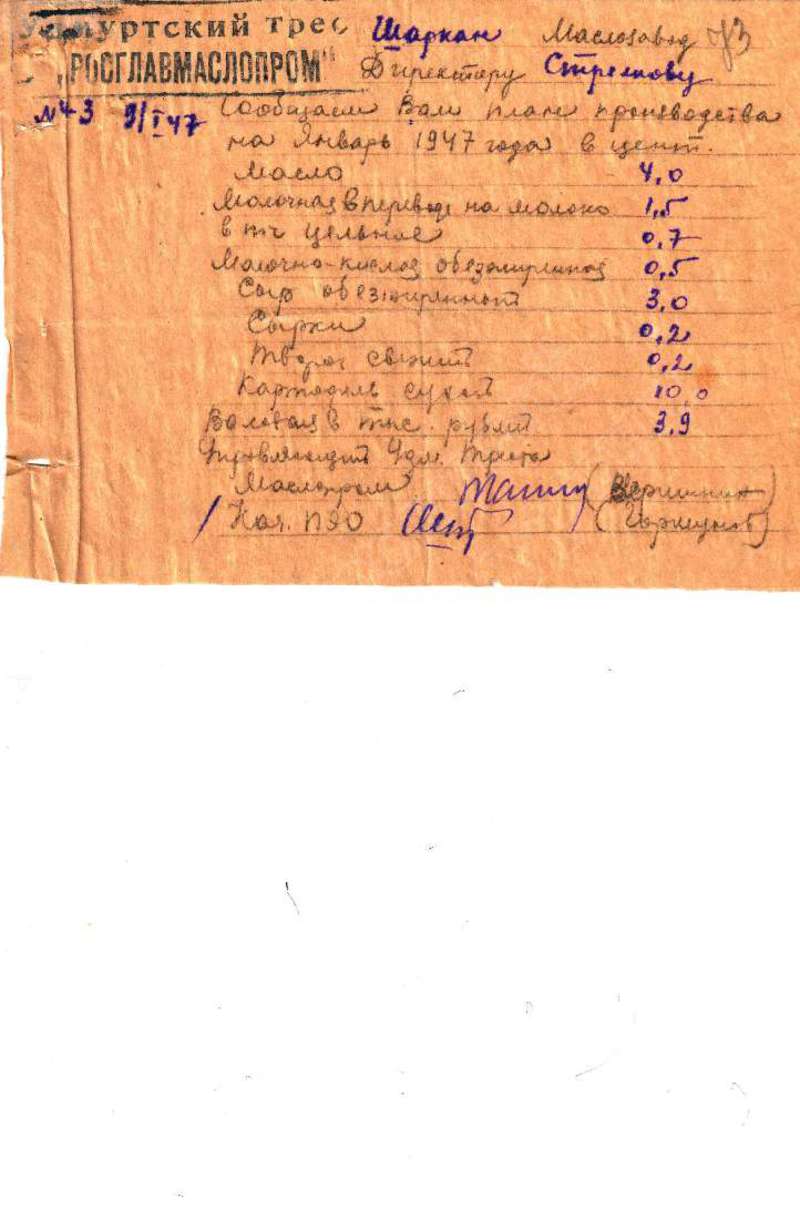 Удмуртский трест
"РОСГЛАВМАСЛОПРОМ"
№ 43 9/I 47
Шаркан Маслозавод
Директору Стрелкову
Сообщаем Вам план производства
на Январь 1947 года в цент.
Масло 4,0
Молочная в переводе на молоко 1,5
в т.ч цельное 0,7
Молочно-кислая обезжиренная 0,5
Сыр обезжиренный 3,0
Сырки 0,2
Творог свежий 0,2
Картофель сухой 10,0
Валовая в тыс. рублей 3,9
Управляющий Удм. треста
Маслопром
Нач. ППО (Горшунов)